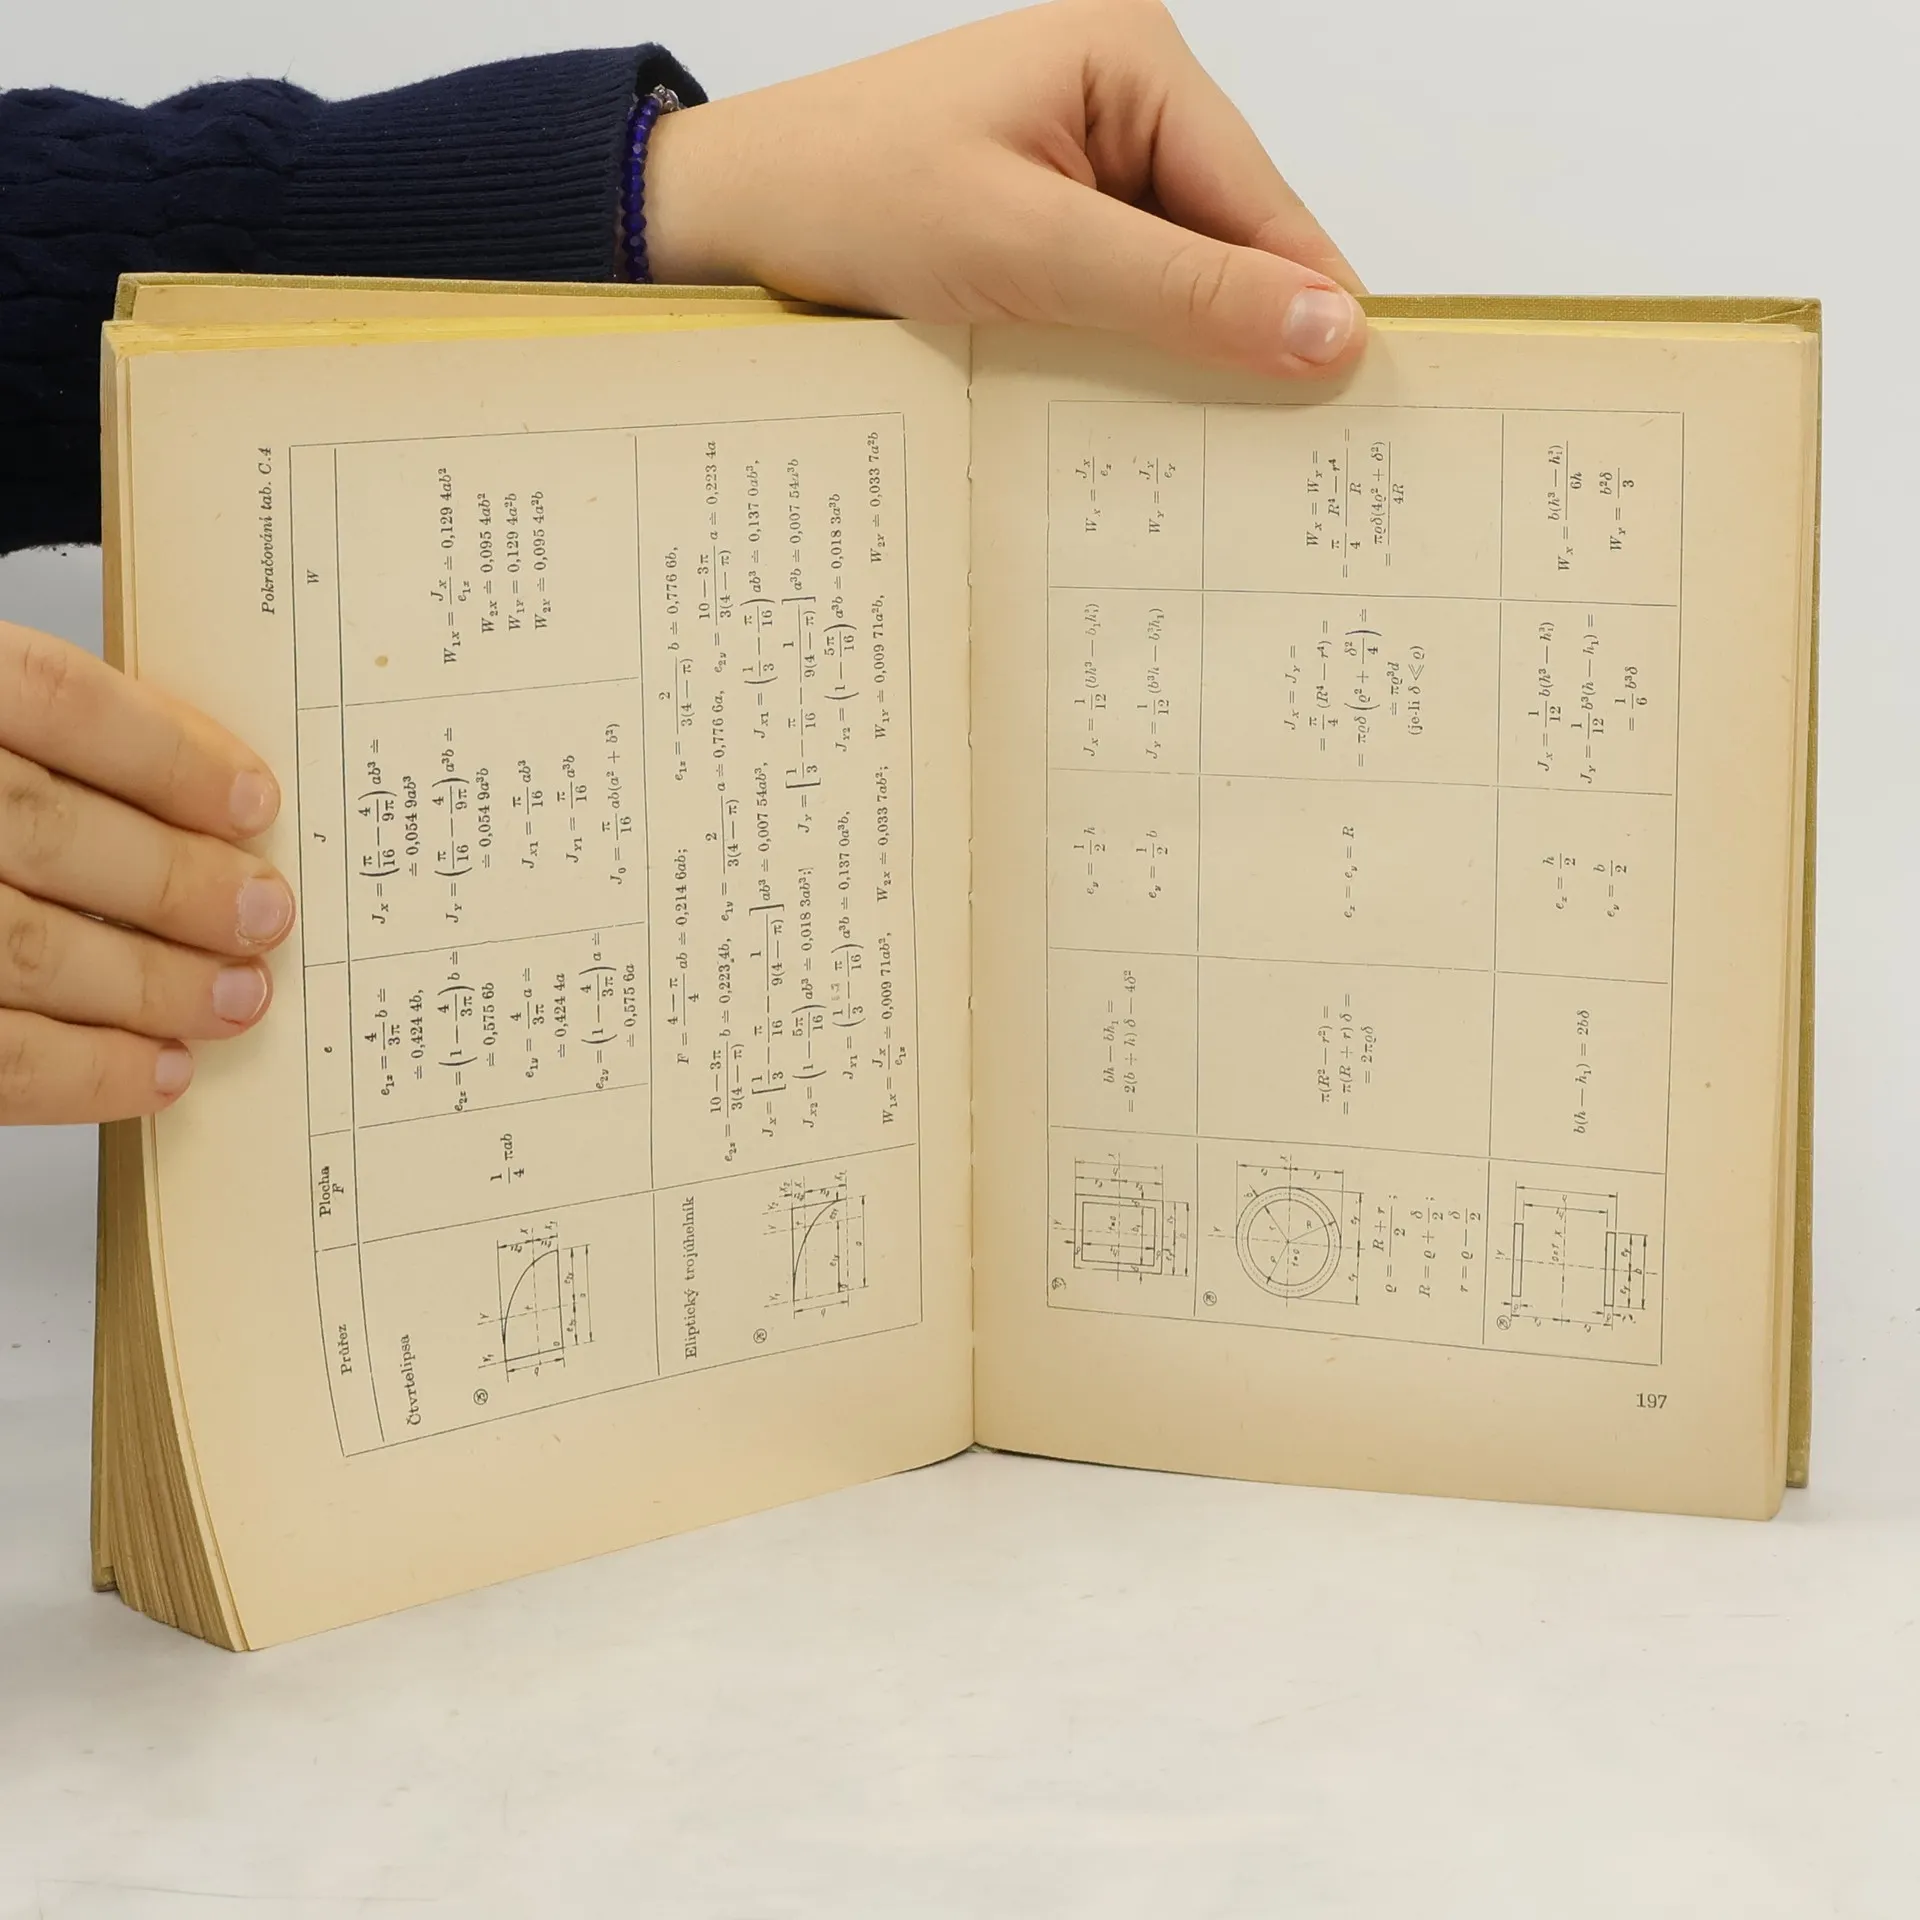 Pokračování tab. C.4
Průřez Plocha F e J W
Čtvrtelipsa
㉕
1/4 πab
e₁ₓ = 4/3π b ≐
≐ 0,424 4b,
e₂ₓ = (1 — 4/3π) b ≐
≐ 0,575 6b
e₁ᵧ = 4/3π a ≐
≐ 0,424 4a
e₂ᵧ = (1 — 4/3π) a ≐
≐ 0,575 6a
J_X = (π/16 — 4/9π) ab³ ≐
≐ 0,054 9ab³
J_Y = (π/16 — 4/9π) a³b ≐
≐ 0,054 9a³b
J_X1 = π/16 ab³
J_Y1 = π/16 a³b
J₀ = π/16 ab(a² + b²)
W₁X = J_X/e₁ₓ ≐ 0,129 4ab²
W₂X ≐ 0,095 4ab²
W₁Y ≐ 0,129 4a²b
W₂Y ≐ 0,095 4a²b
Eliptický trojúhelník
㉖
F = 4 — π/4 ab ≐ 0,214 6ab; e₁ₓ = 2/3(4 — π) b ≐ 0,776 6b,
e₂ₓ = 10 — 3π/3(4 — π) b ≐ 0,223 4b, e₁ᵧ = 2/3(4 — π) a ≐ 0,776 6a, e₂ᵧ = 10 — 3π/3(4 — π) a ≐ 0,223 4a
J_X = [1/3 — π/16 — 1/9(4 — π)] ab³ ≐ 0,007 54ab³, J_X1 = (1/3 — π/16) ab³ ≐ 0,137 0ab³,
J_X2 = (1 — 5π/16) ab³ ≐ 0,018 3ab³; J_Y = [1/3 — π/16 — 1/9(4 — π)] a³b ≐ 0,007 54a³b
J_Y1 = (1/3 — π/16) a³b ≐ 0,137 0a³b, J_Y2 = (1 — 5π/16) a³b ≐ 0,018 3a³b
W₁X = J_X/e₁ₓ ≐ 0,009 71ab², W₂X ≐ 0,033 7ab²; W₁Y ≐ 0,009 71a²b, W₂Y ≐ 0,033 7a²b
bh — bh₁ =
= 2(b + h) δ — 4δ²
eᵧ = 1/2 h
eᵧ = 1/2 b
J_X = 1/12 (bh³ — b₁h₁³)
J_Y = 1/12 (b³h — b₁³h₁)
W_X = J_X/eₓ
W_Y = J_Y/eᵧ
㉘
ϱ = R + r/2 ;
R = ϱ + δ/2 ;
r = ϱ — δ/2
π(R² — r²) =
= π(R + r) δ =
= 2πϱδ
eₓ = eᵧ = R
J_X = J_Y =
= π/4 (R⁴ — r⁴) =
= πϱδ (ϱ² + δ²/4) ≐
≐ πϱ³d
(je-li δ ≪ ϱ)
W_X = W_Y =
= π/4 R⁴ — r⁴/R =
= πϱδ(4ϱ² + δ²)/4R
b(h — h₁) = 2bδ
eₓ = h/2
eᵧ = b/2
J_X = 1/12 b(h³ — h₁³)
J_Y = 1/12 b³(h — h₁) =
= 1/6 b³δ
W_X = b(h³ — h₁³)/6h
W_Y = b²δ/3
197